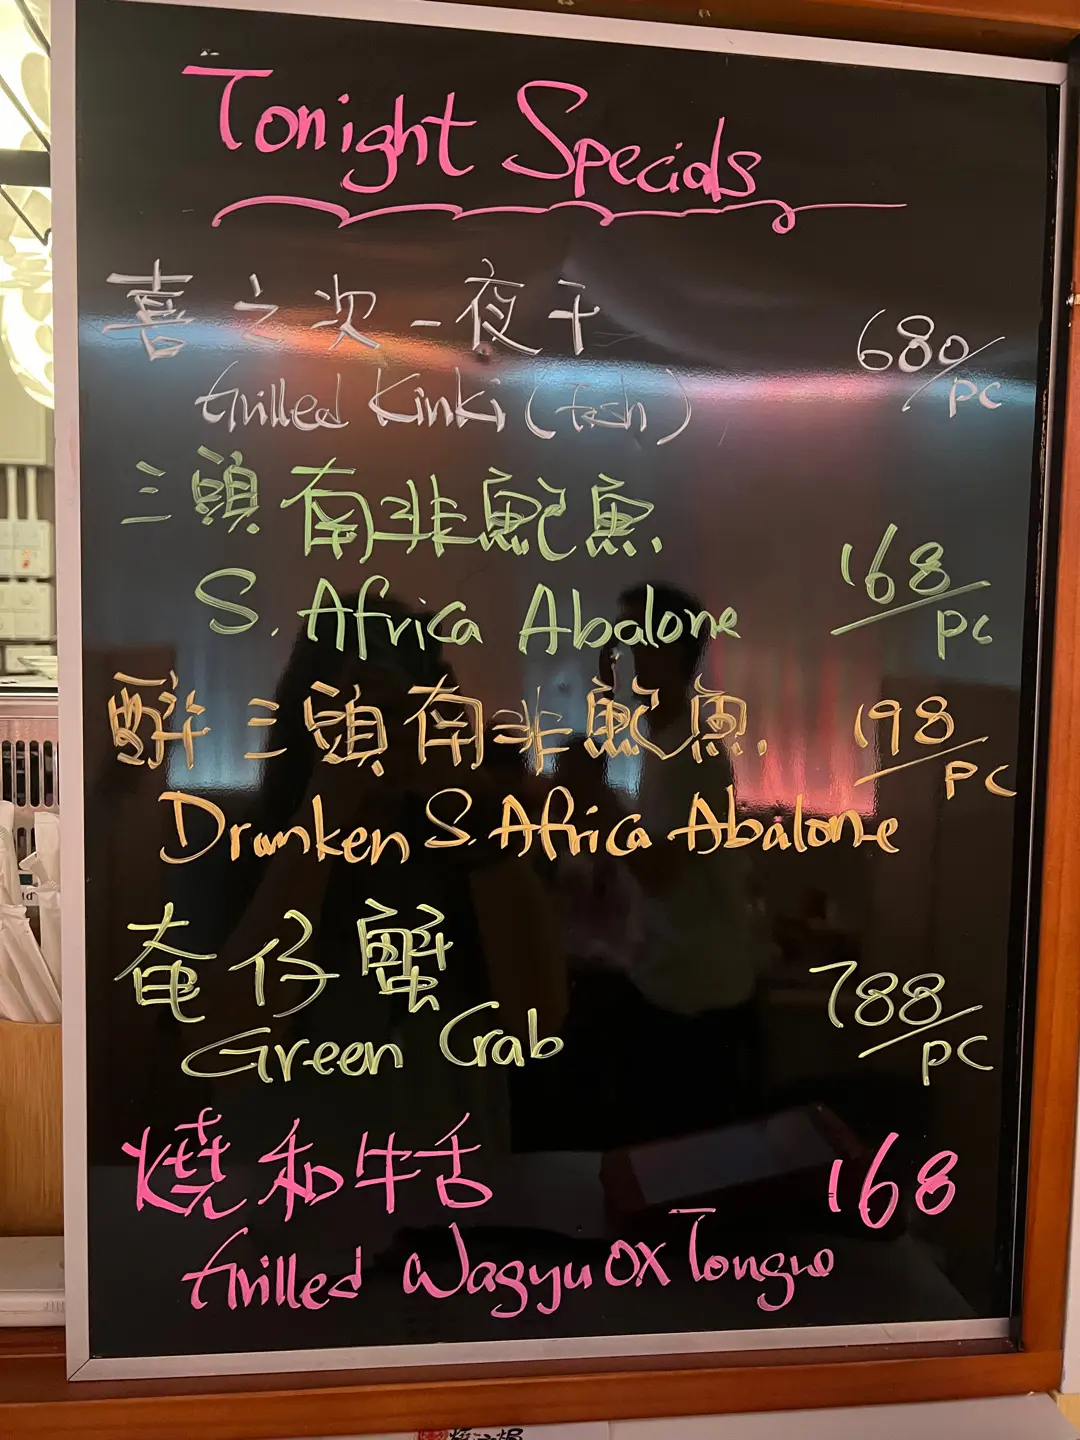 Tonight Specials
喜之次一夜干 680/PC
Grilled Kinki (Fish)
三頭南非鮑魚. 168/PC
S. Africa Abalone
醉三頭南非鮑魚. 198/PC
Drunken S. Africa Abalone
奄仔蟹 788/PC
Green Crab
燒和牛舌 168
Grilled Wagyu OX Tongue